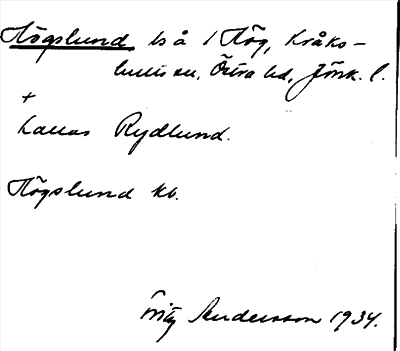 Högslund ls å 1 Hög, Kråks-
hults sn, Östra hd, Jönk. l.
+
kallas Rydlund.
Högslund kb.
Fritz Andersson 1934.